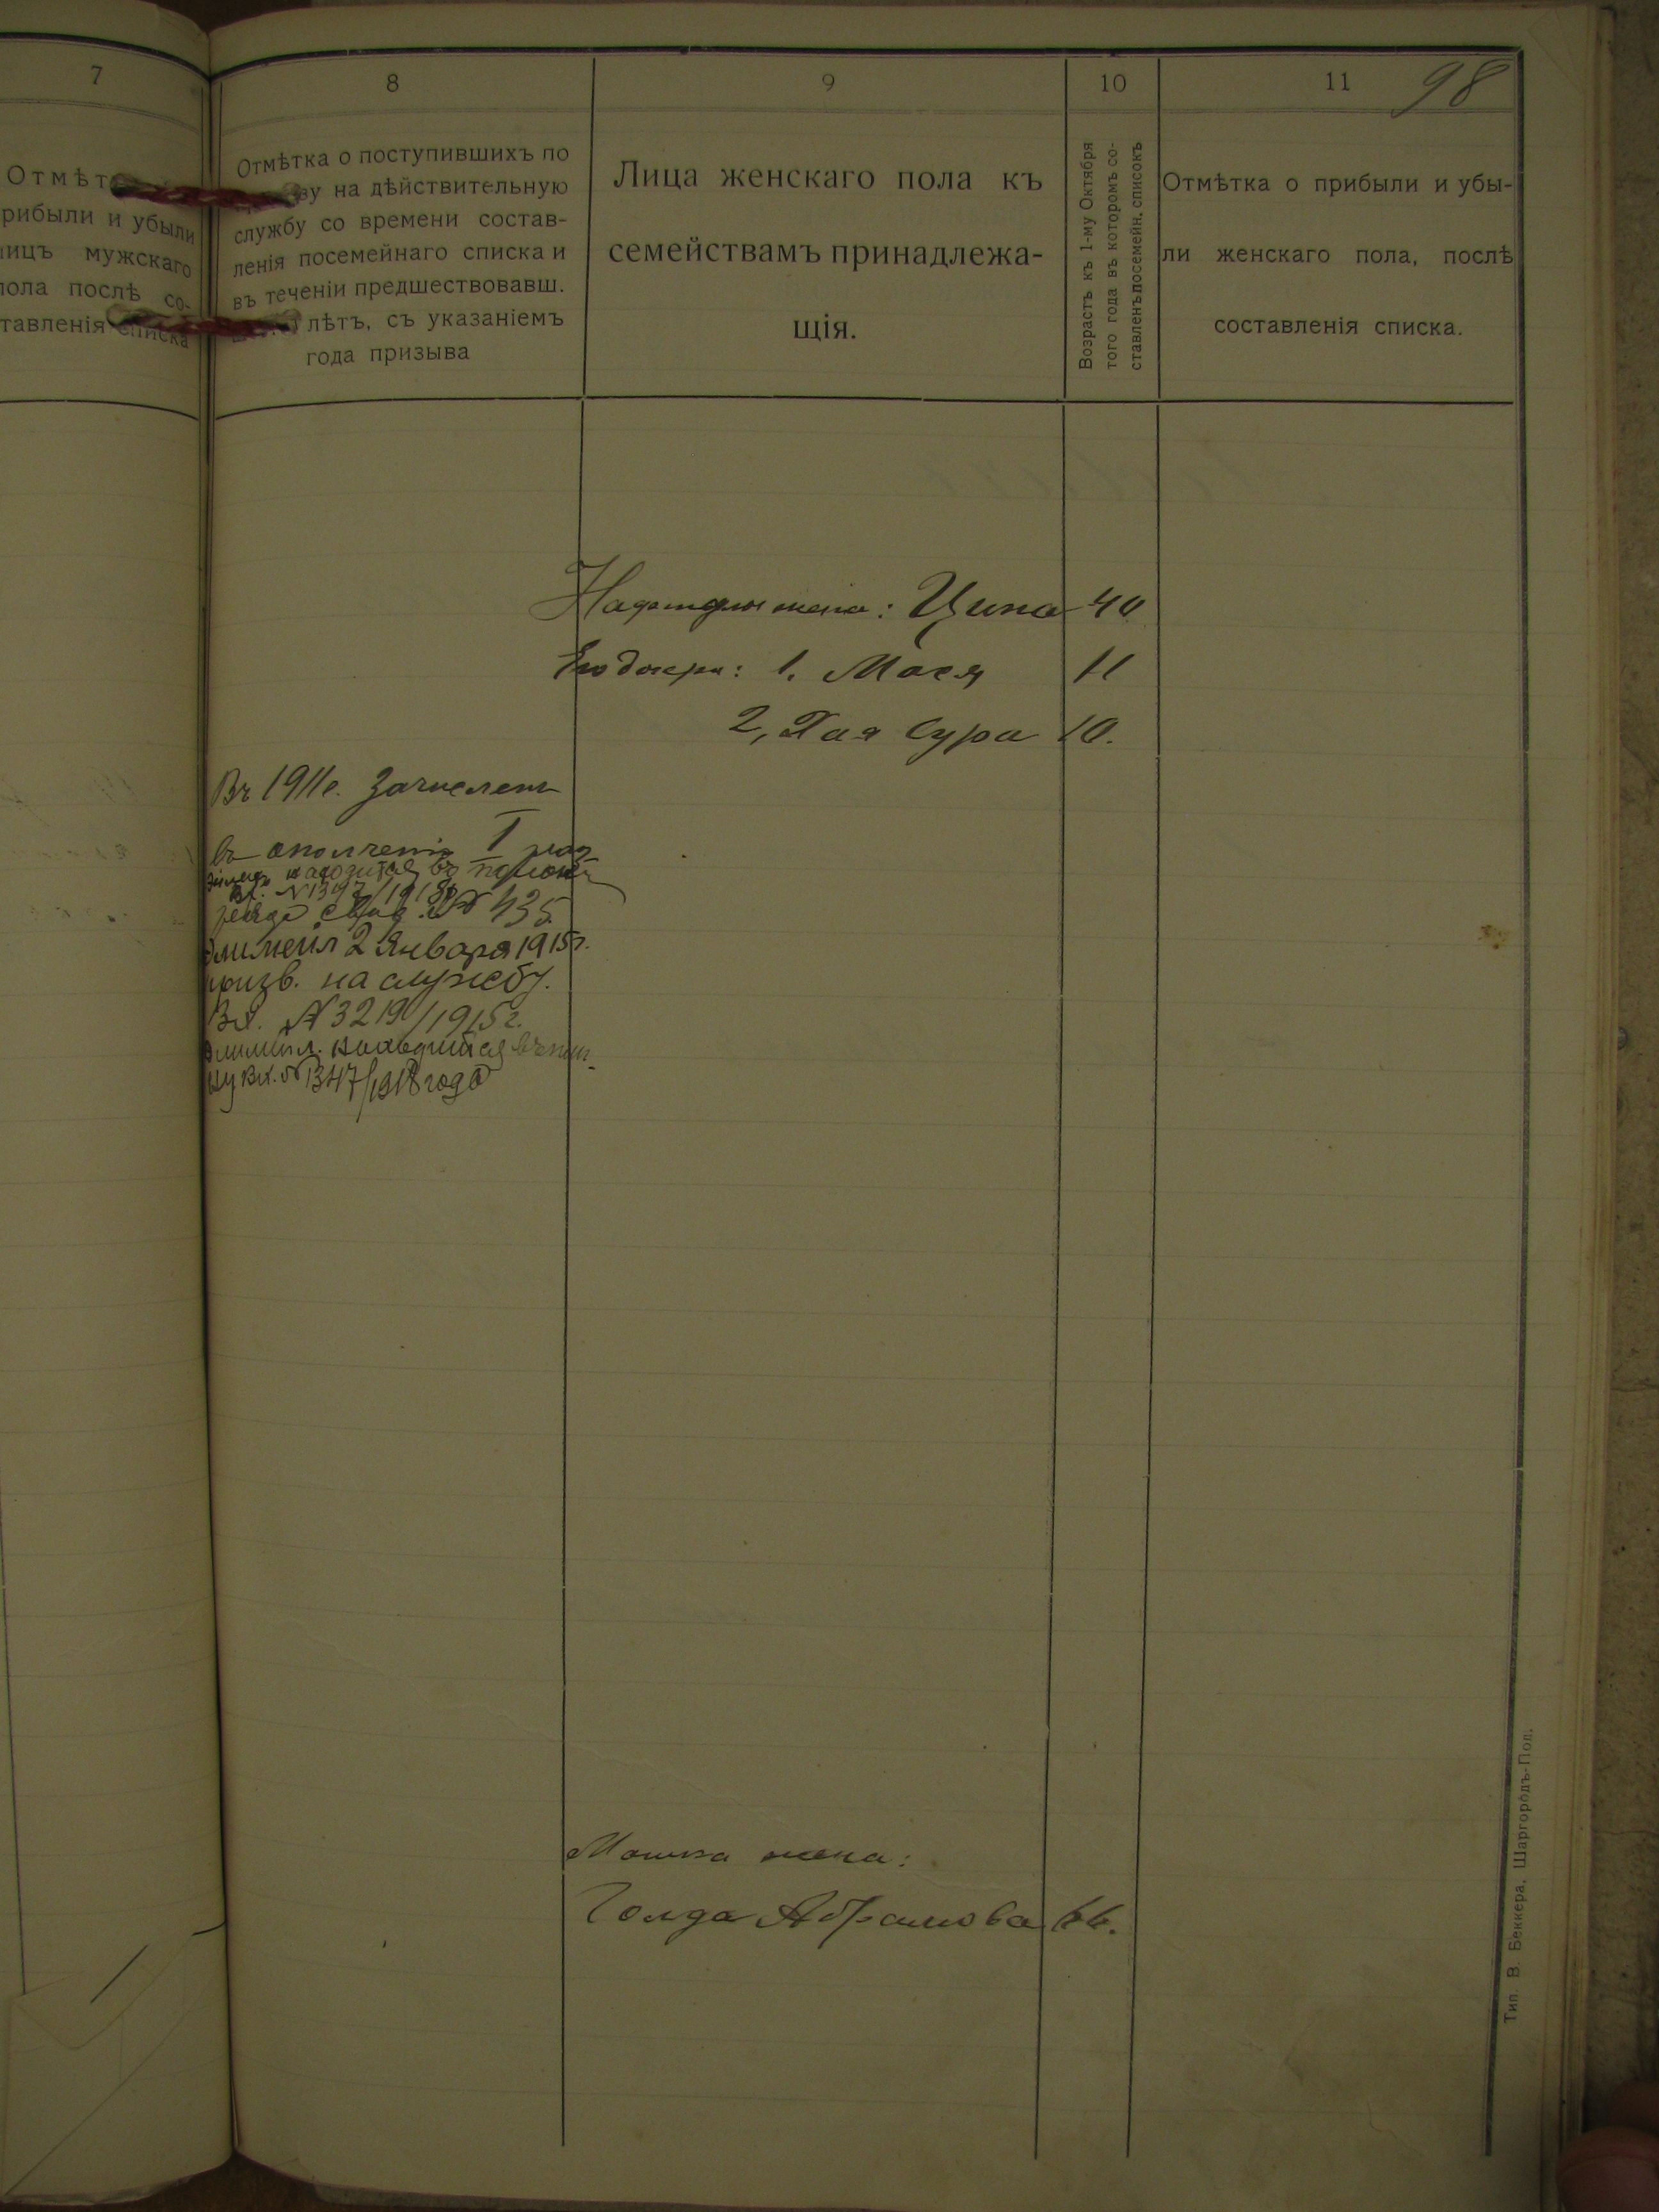 7
Отмѣт
рибыли и убыли
ицъ мужскаго
пола послѣ со-
тавленія списка
8
Отмѣтка о поступившихъ по
ву на дѣйствительную
службу со времени состав-
ленія посемейнаго списка и
въ теченіи предшествовавш.
лѣтъ, съ указаніемъ
года призыва
9
Лица женскаго пола къ
семействамъ принадлежа-
щія.
10
Возрастъ къ 1-му Октября
того года въ которомъ со-
ставленъ посемейн. списокъ
11
98
Отмѣтка о прибыли и убы-
ли женскаго пола, послѣ
составленія списка.
жена: Ципа 40
Его дочери: 1. Мася 11
2, Хая Сура 10.
Въ 1911 г. Зачисленъ
въ ополченіе I раз
находится въ
Вх. № 1347/1918
ряда Свид. № 435
2 Января 1915 г.
призв. на службу.
Вх. № 3219/1915 г.
находится въ плѣ-
ну Вх. № 1347/1918 года
Мошка жена:
Голда Абрамова 66.
Тип. В. Беккера, Шаргородъ-Под.